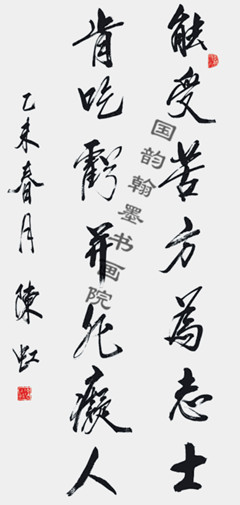 能受苦方為志士
肯吃虧并非癡人
乙未春月 陳虹
国韵翰墨书画院